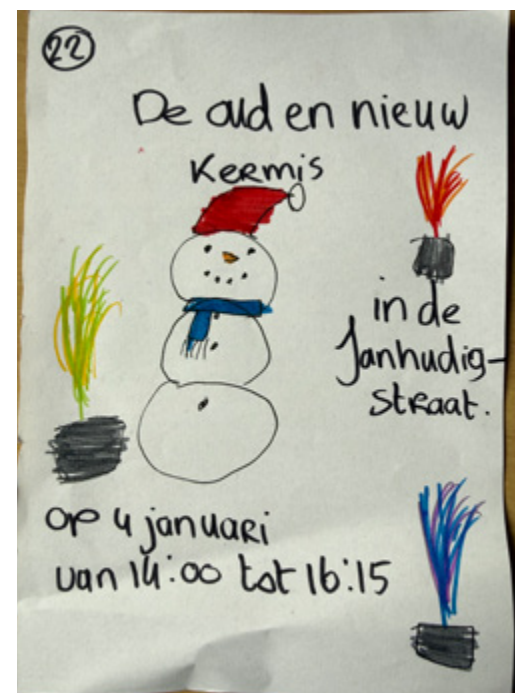 22
De oud en nieuw
Kermis
in de
Janhudig-
straat.
op 4 januari
van 14:00 tot 16:15